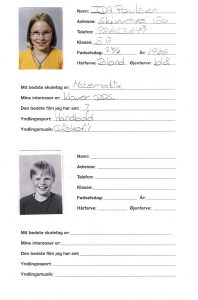 Navn: IDA Paulsen
Adresse:
Telefon:
Klasse:
Fødselsdag: År: 1986
Hårfarve: Blond Øjenfarve: blå
Mit bedste skolefag er: Matematik
Mine interesser er:
Den bedste film jeg har set: ?
Yndlingssport: Handbold
Yndlingsmusik:
Navn:
Adresse:
Telefon:
Klasse:
Fødselsdag: År:
Hårfarve: Øjenfarve:
Mit bedste skolefag er:
Mine interesser er:
Den bedste film jeg har set:
Yndlingssport:
Yndlingsmusik: